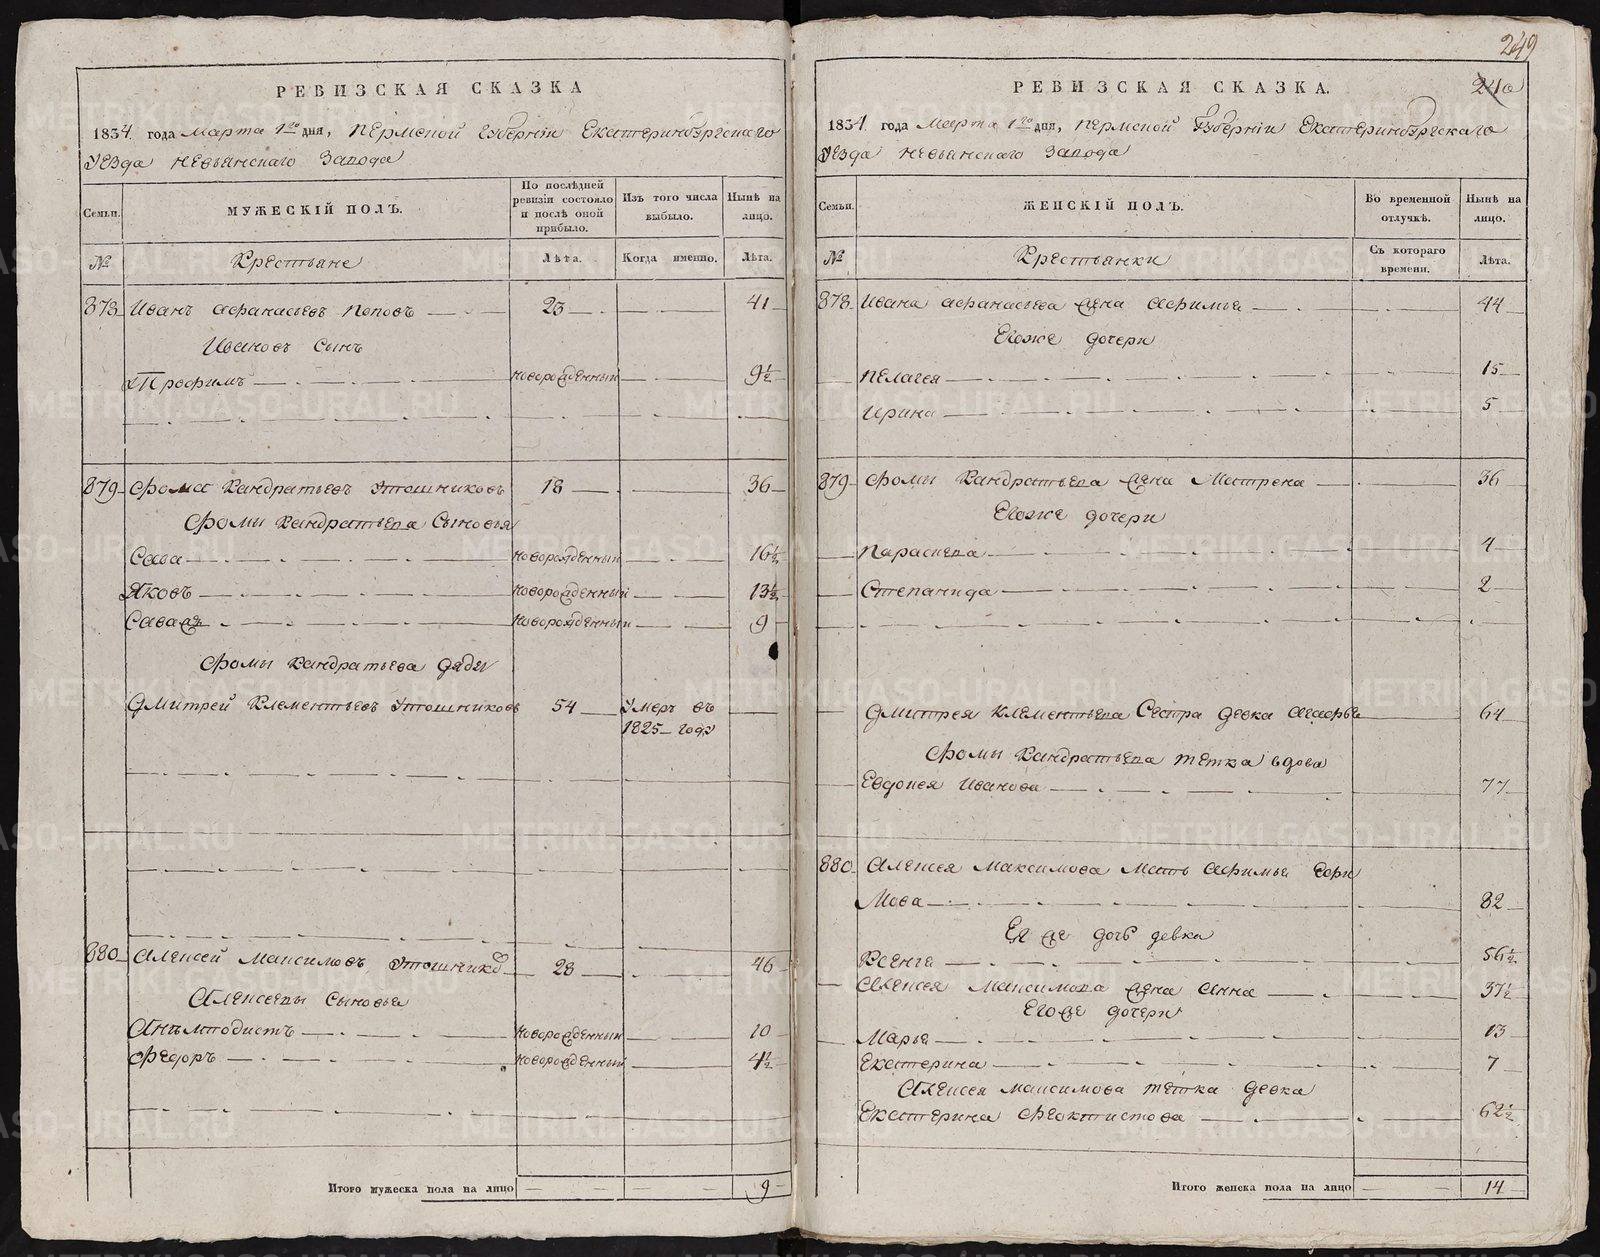 249
240
РЕВИЗСКАЯ СКАЗКА
1834 года Марта 1го дня, Пермской Губернiи Екатеринбургскаго
уезда Невьянскаго Завода
Семьи.
МУЖЕСКIЙ ПОЛЪ.
По послѣдней ревизiи состояло и послѣ оной прибыло.
Изъ того числа выбыло.
Нынѣ на лицо.
№
Крестьяне
Лѣта.
Когда именно.
Лѣта.
878 Иванъ Афанасьевъ Поповъ 23 41
Ивановъ сынъ
Трофимъ новорожденный 9½
879 Фома Кандратьевъ Утошниковъ 18 36
Фомы Кандратьева Сыновья
Сава новорожденный 16½
Яковъ новорожденный 13½
новорожденный 9
Фомы Кандратьева дяди
Дмитрей Клементьевъ Утошниковъ 54 Умеръ въ
1825 году
880 Алексей Максимовъ Утошниковъ 28 46
Алексеевы сыновья
новорожденный 10
Федоръ новорожденный 4½
Итого мужеска пола на лицо 9
РЕВИЗСКАЯ СКАЗКА.
1834 года Марта 1го дня, Пермской Губернiи Екатеринбургскаго
уезда Невьянскаго Завода
Семьи.
ЖЕНСКIЙ ПОЛЪ.
Во временной отлучкѣ.
Нынѣ на лицо.
№
Крестьянки
Съ котораго времени.
Лѣта.
878 Ивана Афанасьева жена Афимья 44
Егоже дочери
Пелагея 15
Ирина 5
879 Фомы Кандратьева жена Матрена 36
Егоже дочери
Параскева 4
Степанида 2
Дмитрея Клементьева Сестра девка Агафья 64
Фомы Кандратьева тетка вдова
Евдокея Иванова 77
880 Алексея Максимова мать Афимья Ефи
мова 82
Ея же дочь девка
Ксенья 56½
Алексея Максимова жена Анна 37½
Егоже дочери
Марья 13
Екатерина 7
Алексея Максимова тетка девка
Екатерина Феоктистова 62½
Итого женска пола на лицо 14
METRIKI.GASO-URAL.RU